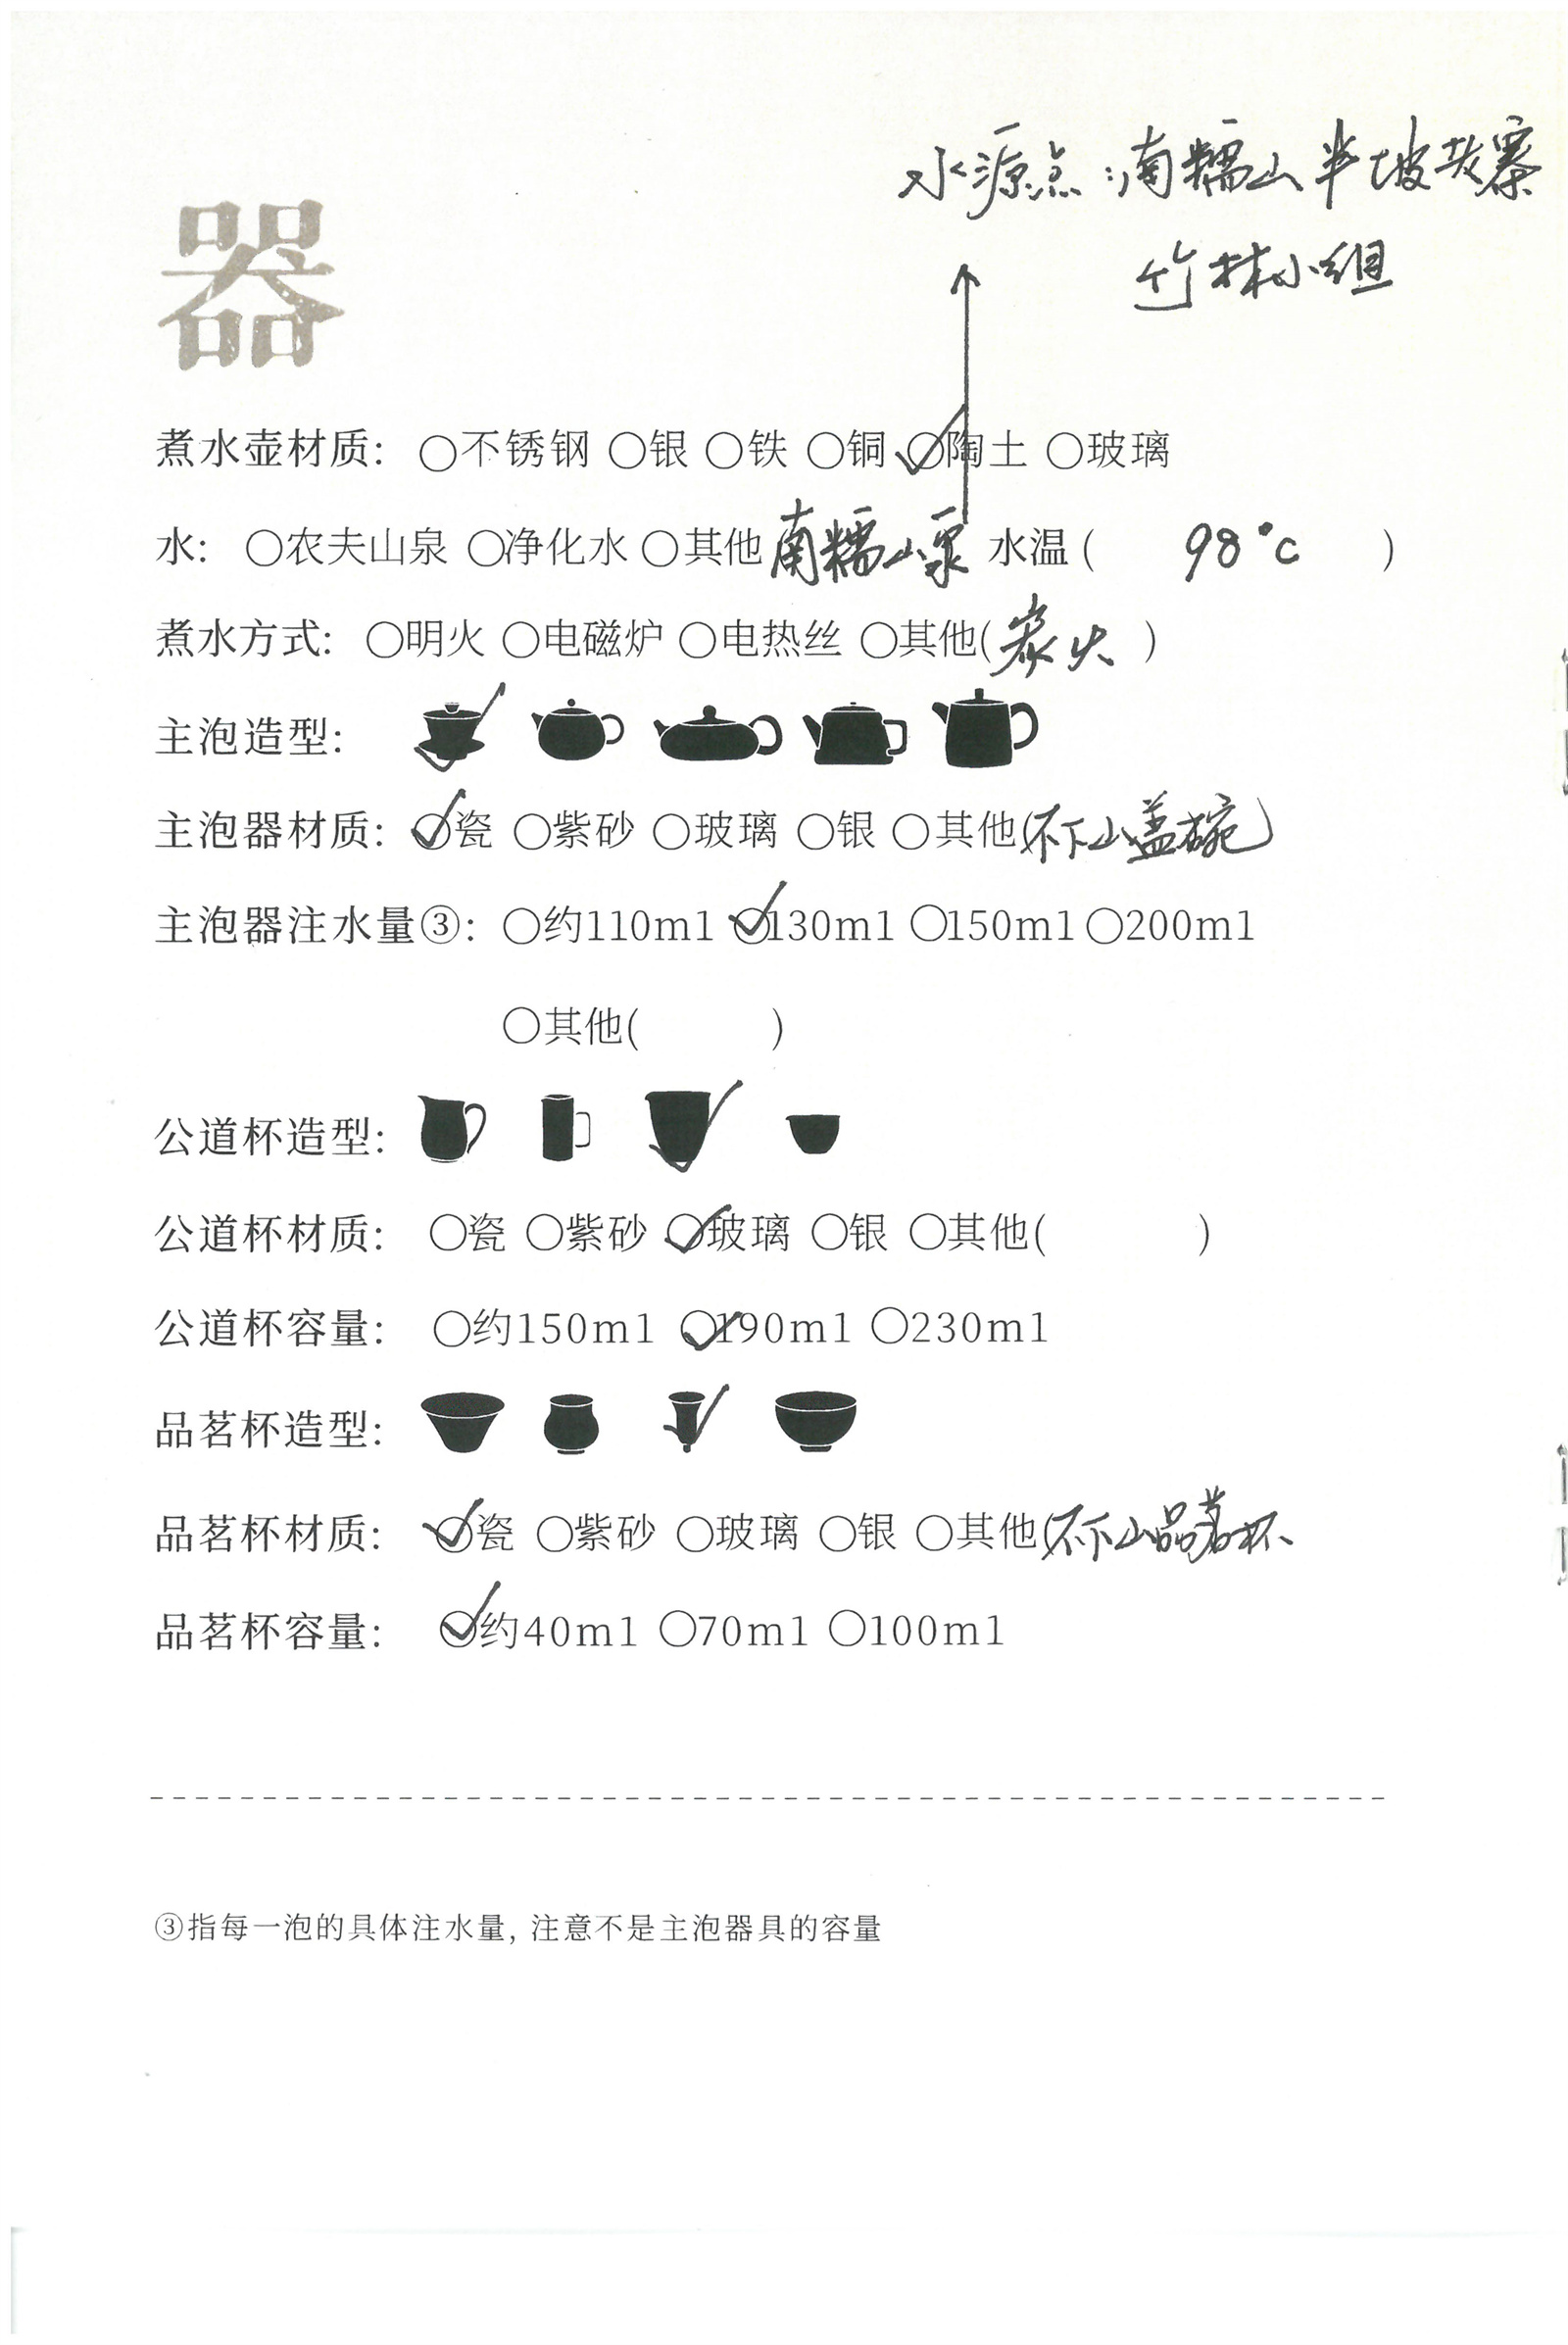 水源点:南糯山半坡老寨
竹林小组
器
煮水壶材质: ○不锈钢 ○银 ○铁 ○铜 ○陶土 ○玻璃
水: ○农夫山泉 ○净化水 ○其他 南糯山泉 水温( 98°C )
煮水方式: ○明火 ○电磁炉 ○电热丝 ○其他(炭火)
主泡造型:
主泡器材质: ○瓷 ○紫砂 ○玻璃 ○银 ○其他(不下山盖碗)
主泡器注水量③: ○约110ml ○130ml ○150ml ○200ml
○其他( )
公道杯造型:
公道杯材质: ○瓷 ○紫砂 ○玻璃 ○银 ○其他( )
公道杯容量: ○约150ml ○190ml ○230ml
品茗杯造型:
品茗杯材质: ○瓷 ○紫砂 ○玻璃 ○银 ○其他(不下山品茗杯
品茗杯容量: ○约40ml ○70ml ○100ml
③指每一泡的具体注水量, 注意不是主泡器具的容量